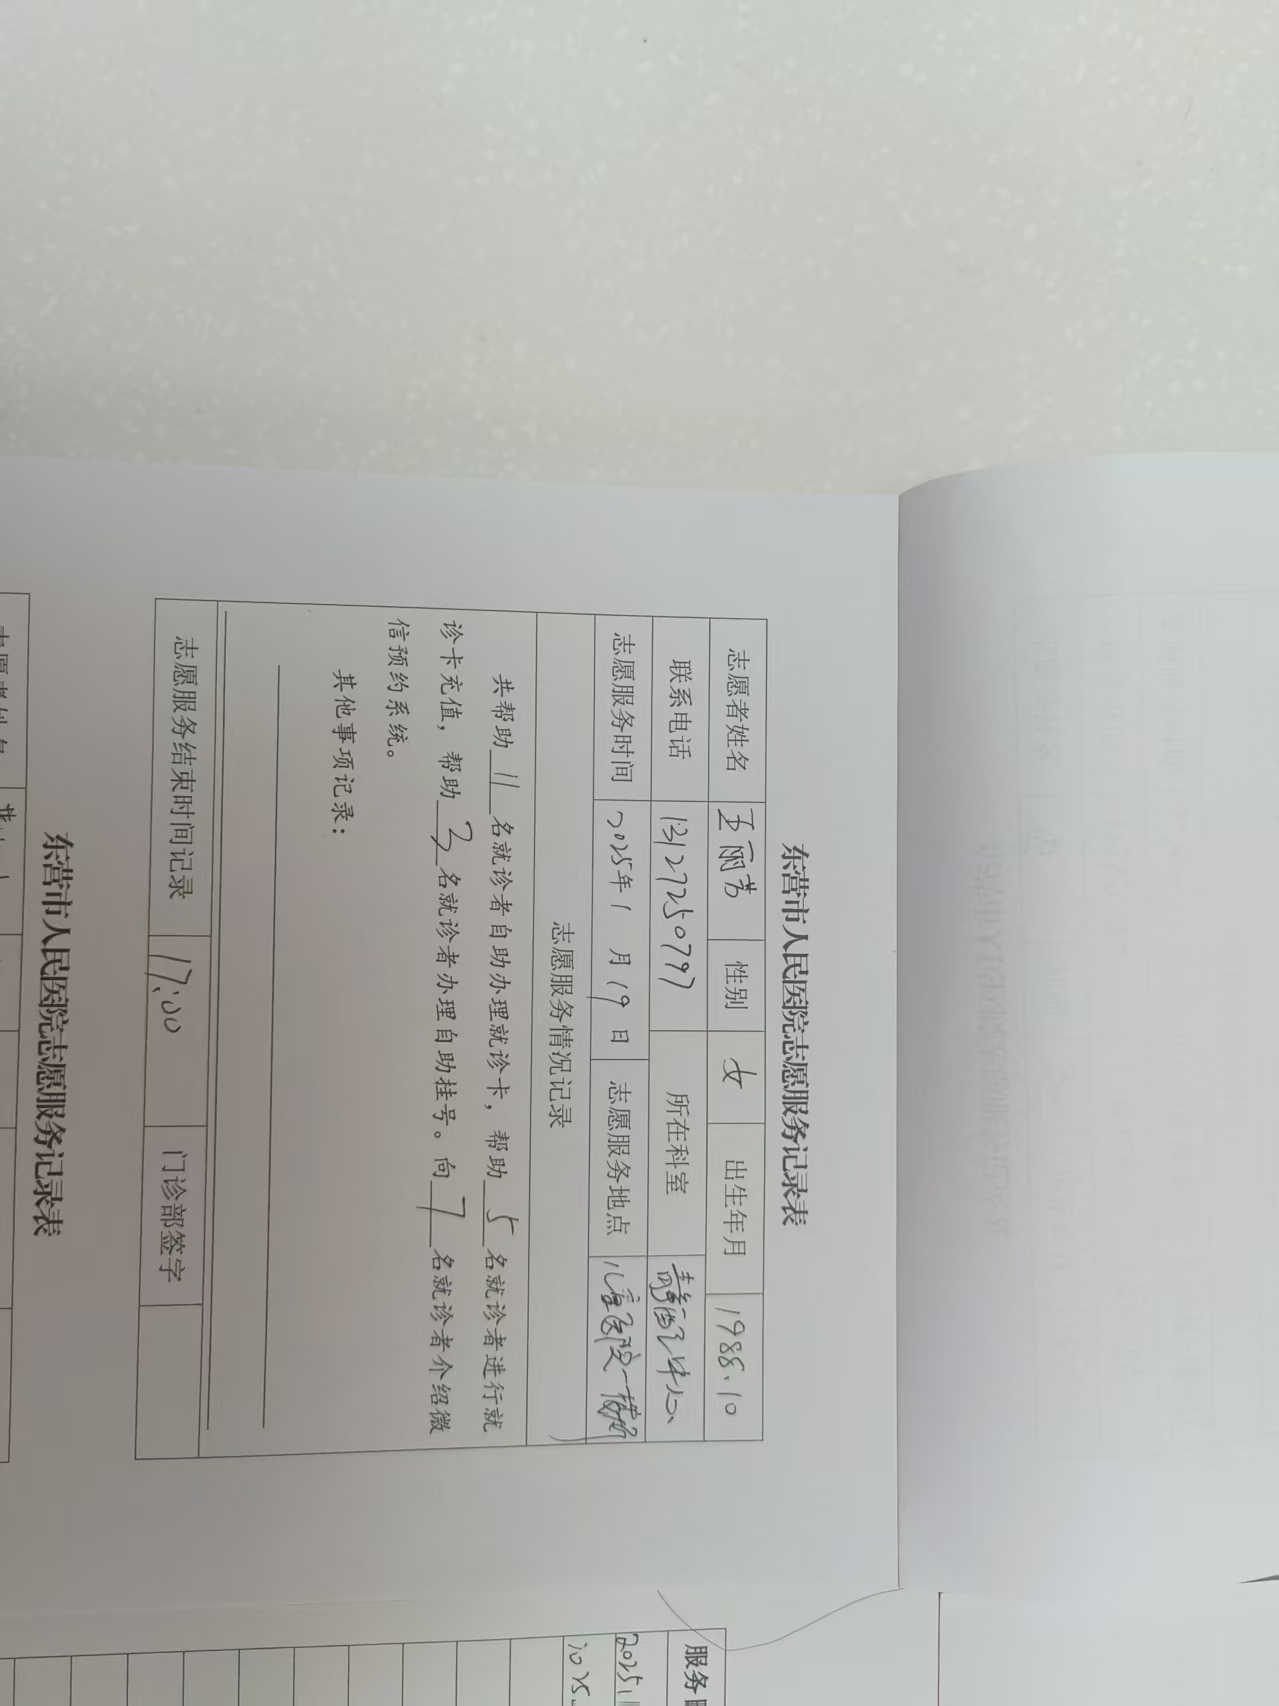 东营市人民医院志愿服务记录表
志愿者姓名 王丽芳 性别 女 出生年月 1988.10
联系电话 13127250797 所在科室 静配中心
志愿服务时间 2025年1月19日 志愿服务地点 儿童医院一楼
志愿服务情况记录
共帮助11名就诊者自助办理就诊卡，帮助5名就诊者进行就
诊卡充值，帮助3名就诊者办理自助挂号。向7名就诊者介绍微
信预约系统。
其他事项记录：
志愿服务结束时间记录 17:00 门诊部签字
东营市人民医院志愿服务记录表
志愿者姓名
服务
2025.1